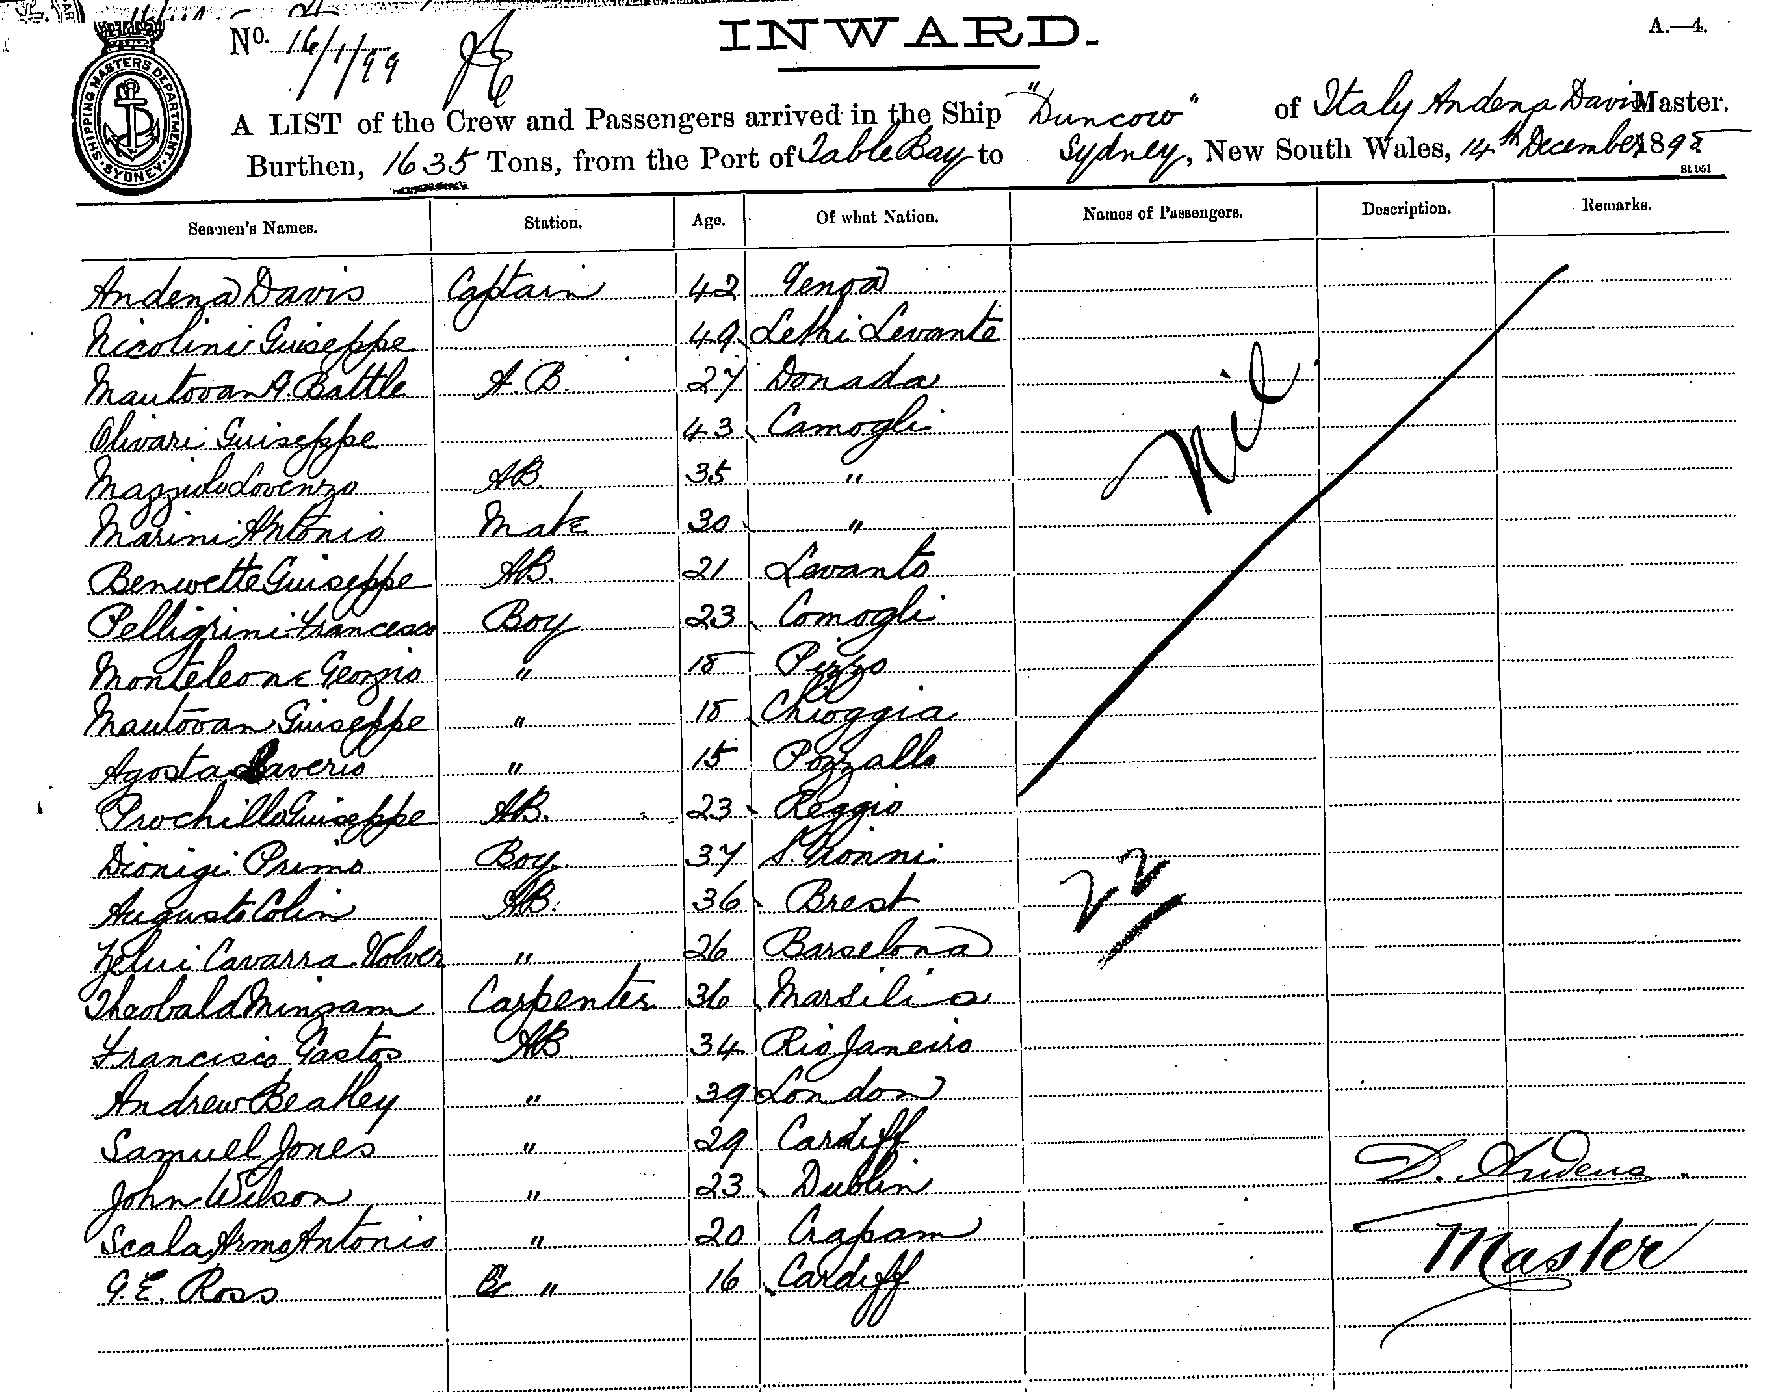 No. 16/1/99
INWARD.
A.—4.
SHIPPING MASTERS DEPARTMENT. SYDNEY.
A LIST of the Crew and Passengers arrived in the Ship "Duncow" of Italy Andena Davis Master.
Burthen, 1635 Tons, from the Port of Table Bay to Sydney, New South Wales, 14th December 1895
Seamen's Names. Station. Age. Of what Nation. Names of Passengers. Description. Remarks.
Andena Davis Captain 42 Genoa
Nicolini Guiseppe 49 Lethi Levante
Mautovan A. Battle A.B. 27 Donada
Olivari Guiseppe 43 Camogli
Nil
Mazzulo Lovenzo AB. 35 "
Marini Antonio Mate 30 "
Benwette Guiseppe AB. 21 Levanto
Pelligrini Francesco Boy 23 Comogli
Monteleone Georgio " 15 Pizzo
Mautovan Guiseppe " 15 Chioggia
Agosta Saverio " 15 Pozzallo
Prochillo Guiseppe AB. 23 Reggio
Dionigi Primo Boy. 37
22
Auguste Colin AB. 36 Brest
Cavarra " 26 Barselona
Theobald Mingam Carpenter 36 Marsilia
Francisco Gastos AB 34 Rio Janeiro
Andrew Beakey " 39 London
Samuel Jones " 29 Cardiff
John Wilson " 23 Dublin
D. Andena.
Scala Armo Antonio " 20 Crapam
Master
G.E. Ross " 16 Cardiff